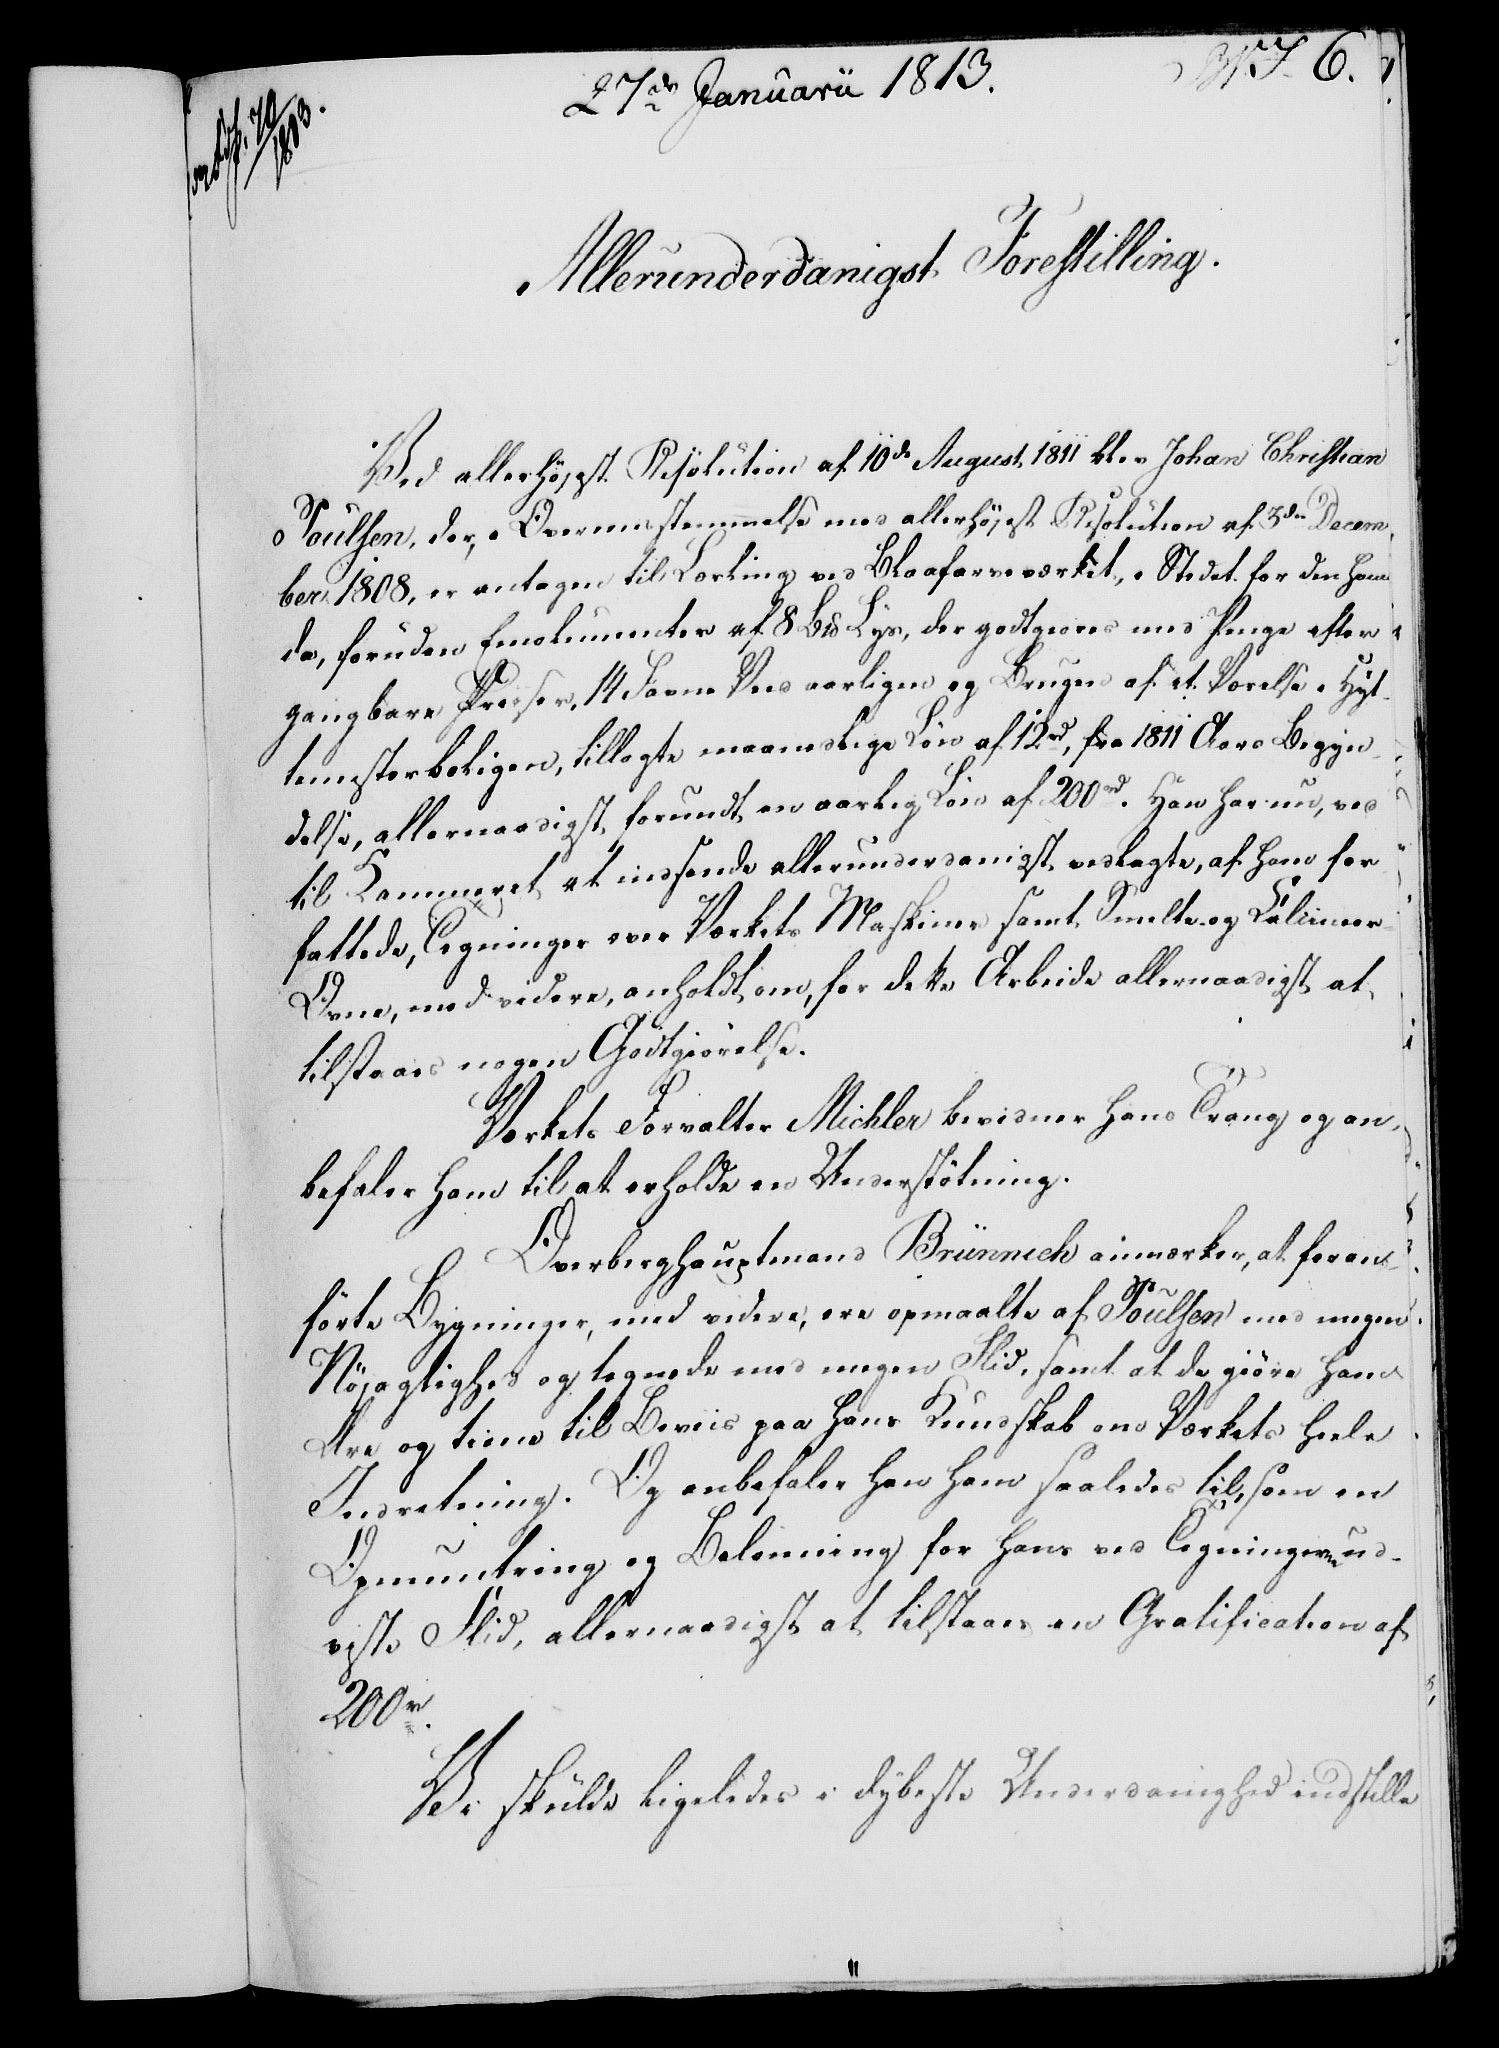 27de Januarii 1813.
6.
1803.
Allerunderdanigst Forestilling.
Ved allerhøjest Resolution af 10de August 1811 blev Johan Christian
Poulsen, der, i Overeensstemmelse med allerhøjest Resolution af 3die Decem-
ber 1808, er antagen til Lærling ved Blaafarveværket, i Stedet for den ham
da, foruden Emolumenter af 8 L℔ Lys, der godtgiøres med Penge efter
gangbare Priser, 14 Favne Veed aarligen og Brugen af et Værelse i Hyt-
temesterboligen, tillagte maanedlige Løn af 12rd, fra 1811 Aars Begyn-
delse, allernaadigst forundt en aarlig Løn af 200rd. Han har nu, ved
til Kammeret at indsende allerunderdanigst vedlagte, af ham for-
fattede, Tegninger over Værkets Maskiner samt Smelte- og Calcineer-
Ovne, med videre, anholdt om, for dette Arbeide allernaadigst at
tilstaaes nogen Godtgiørelse.
Værkets Forvalter Michler bevidner hans Trang og an-
befaler ham til at erholde en Understøtning.
Overberghauptmand Brünnich anmærker, at foran-
førte Bygninger, med videre, ere opmaalte af Poulsen med megen
Nøjagtighed og tegnede med megen Flid, samt at de giøre ham
Ære og tiene til Beviis paa hans Kundskab om Værkets heele
Indretning. Og anbefaler han ham saaledes til, som en
Opmuntring og Belønning for hans ved Tegningerne ud-
viste Flid, allernaadigst at tilstaaes en Gratification af
200rd.
Vi skulde ligeledes i dybeste Underdanighed indstille